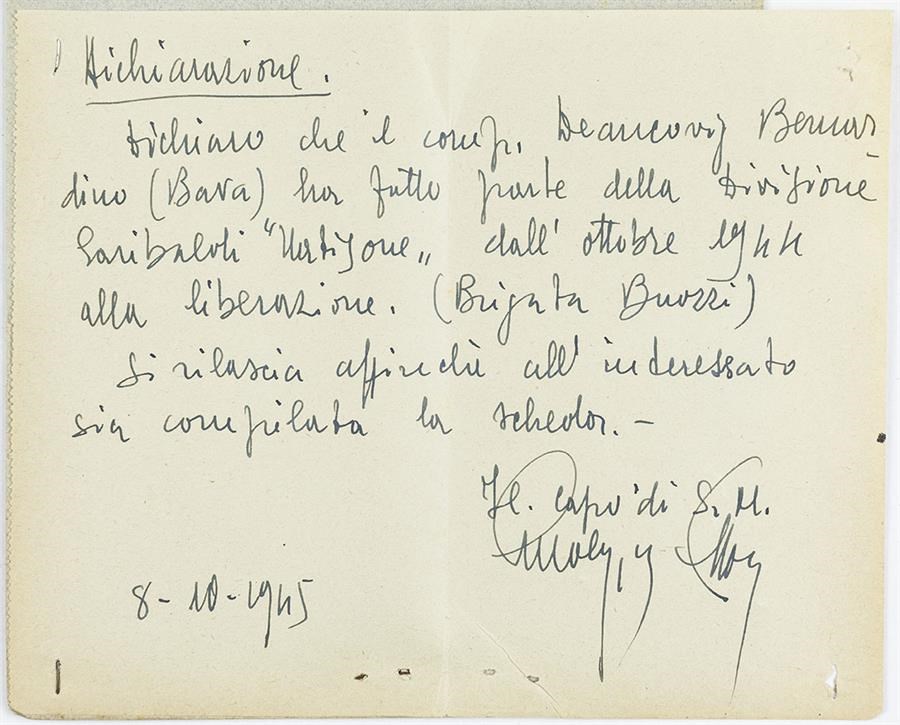 Dichiarazione.
Dichiaro che il comp. Deancovig Bernar-
dino (Bava) ha fatto parte della Divisione
Garibaldi "Natisone" dall'ottobre 1944
alla liberazione. (Brigata Buozzi)
Si rilascia affinchè all'interessato
sia compilata la scheda. -
Il Capo di S. M.
8-10-1945